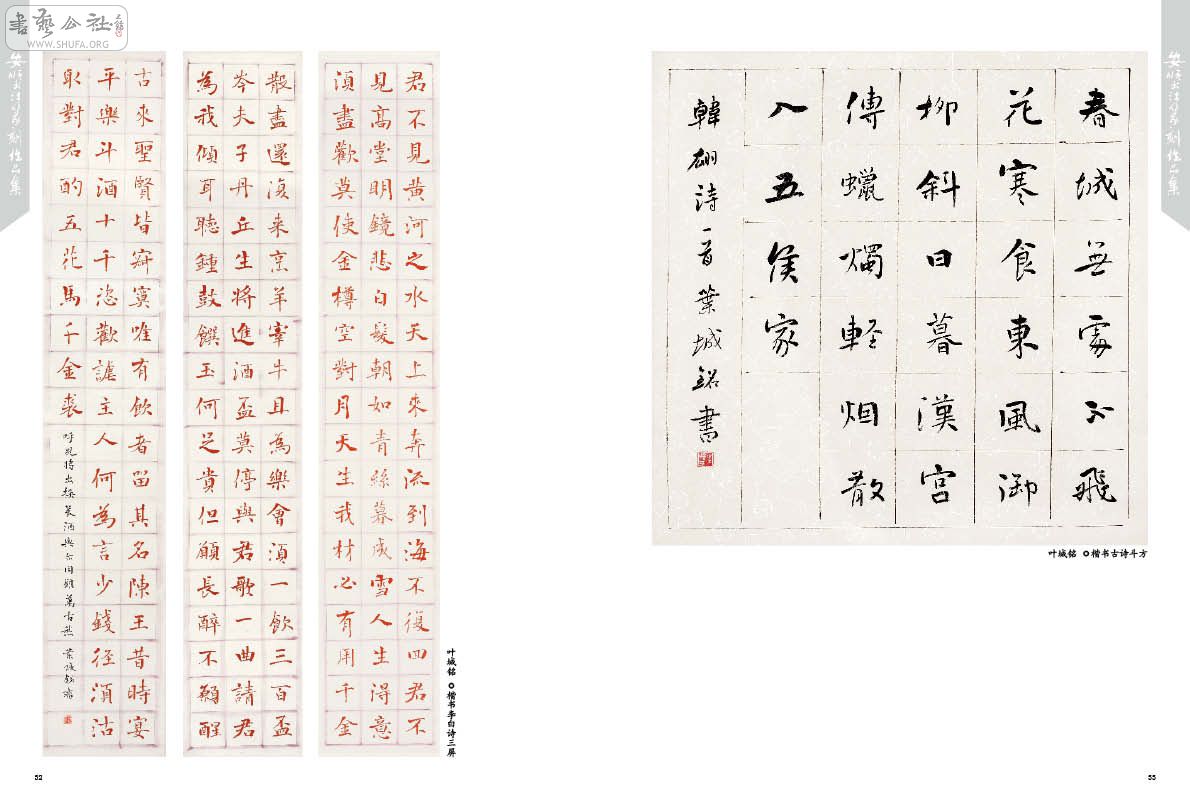 書藝公社
WWW.SHUFA.ORG
安顺书法篆刻作品集
君不見黃河之水天上來奔流到海不復回君不
見高堂明鏡悲白髮朝如青絲暮成雪人生得意
須盡歡莫使金樽空對月天生我材必有用千金
散盡還復来烹羊宰牛且為樂會須一飲三百盃
岑夫子丹丘生將進酒盃莫停與君歌一曲請君
為我傾耳聽鍾鼓饌玉何足貴但願長醉不願醒
古來聖賢皆寂寞唯有飲者留其名陳王昔時宴
平樂斗酒十千恣歡謔主人何為言少錢徑須沽
取對君酌五花馬千金裘
呼兒將出換美酒與尔同銷萬古愁 葉城銘書
叶城铭 ○楷书李白诗三屏
32
安顺书法篆刻作品集
春城無處不飛
花寒食東風御
柳斜日暮漢宮
傳蠟燭軽烟散
入五侯家
韓翃詩一首葉城銘書
叶城铭 ○楷书古诗斗方
33